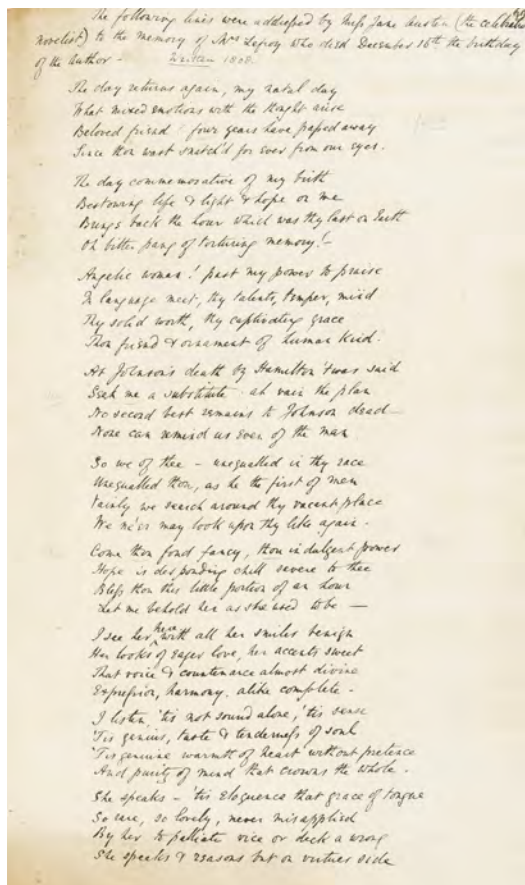 The following lines were addressed by Miss Jane Austen (the celebrated
novelist) to the memory of Mrs Lefroy who died December 16th the birthday
of the Author – Written 1808.
The day returns again, my natal day
What mixed emotions with the thought arise
Beloved friend four years have passed away
Since thou wast snatch'd for ever from our eyes.
The day commemorative of my birth
Bestowing life & light & hope on me
Brings back the hour which was thy last on Earth
Oh bitter pang of torturing memory! –
Angelic woman! past my power to praise
In language meet, thy talents, temper, mind
Thy solid worth, thy captivating grace
Thou friend & ornament of human kind.
At Johnson's death by Hamilton 'twas said
Seek we a substitute – ah vain the plan
No second best remains to Johnson dead –
None can remind us even of the man
So we of thee – unequalled in thy race
Unequalled thou, as he the first of men
Vainly we search around thy vacant place
We ne'er may look upon thy like again –
Come thou fond fancy, thou indulgent power
Hope is desponding chill severe to thee
Bless thou this little portion of an hour
Let me behold her as she used to be —
I see her here with all her smiles benign
Her looks of eager love, her accents sweet
That voice & countenance almost divine
Expression, harmony, alike complete –
I listen, 'tis not sound alone, 'tis sense
'Tis genius, taste & tenderness of soul
'Tis genuine warmth of heart without pretence
And purity of mind that crowns the whole.
She speaks – 'tis Eloquence that grace of tongue
So rare, so lovely, never misapplied
By her to palliate vice or deck a wrong
She speaks & reasons but on virtues side